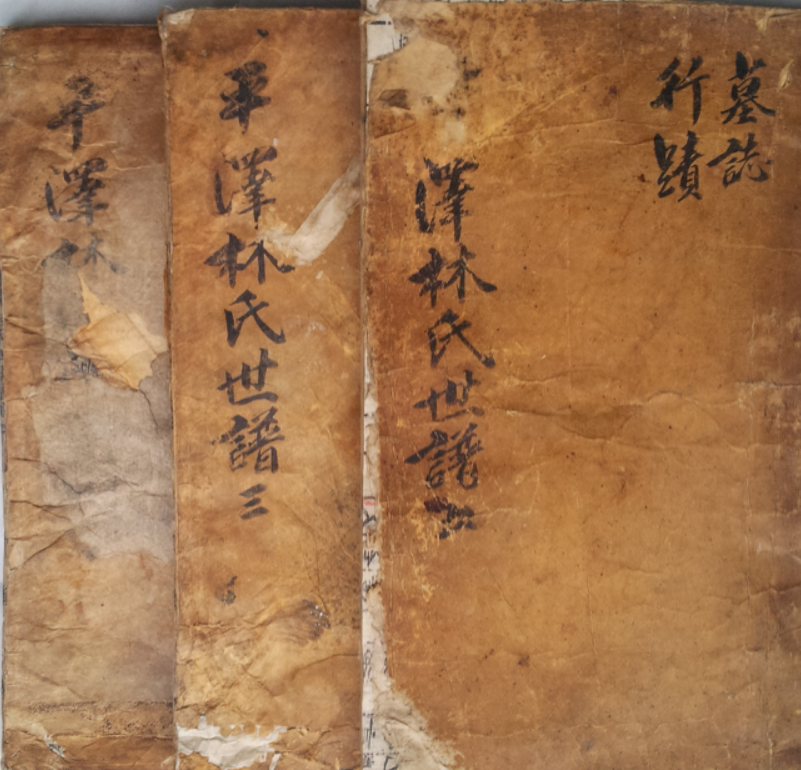 墓誌
行蹟
澤林氏世譜
平澤林氏世譜 三
平澤林